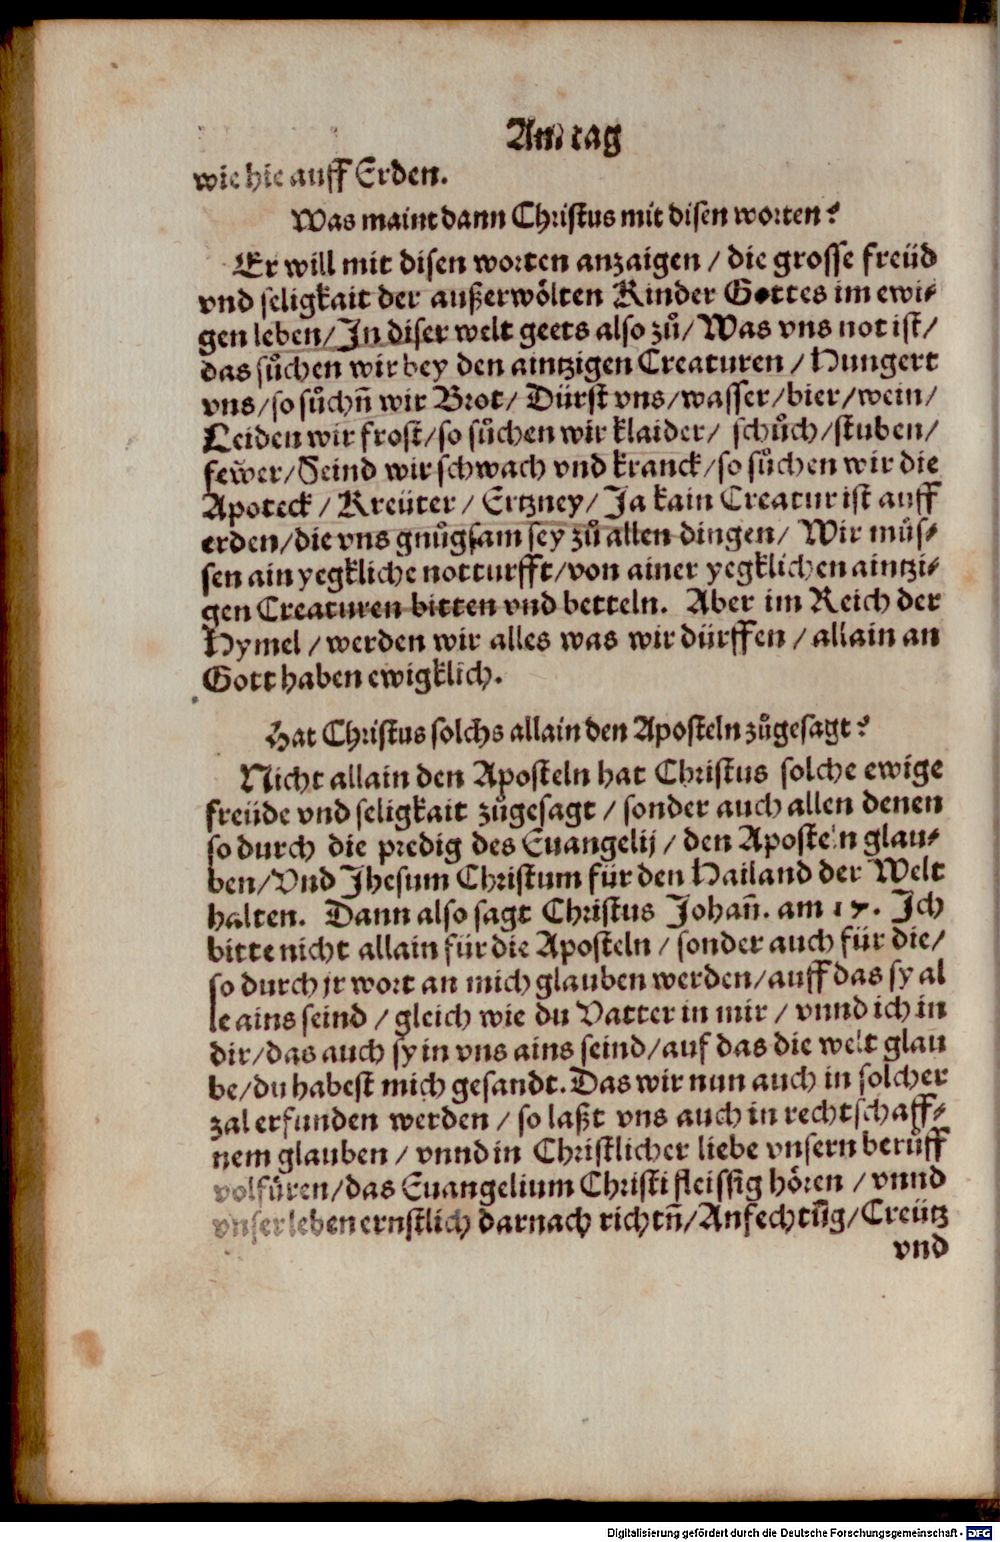 Am tag
wie hie auff Erden.
Was maint dann Christus mit disen worten?
Er will mit disen worten anzaigen / die grosse freüd
vnd seligkait der außerwoͤlten Kinder Gottes im ewi-
gen leben / In diser welt geets also zuͦ / Was vns not ist /
das suͦchen wir bey den aintzigen Creaturen / Hungert
vns / so suͦchñ wir Brot / Dürst vns / wasser / bier / wein /
Leiden wir frost / so suͦchen wir klaider / schuͦch / stuben /
fewer / Seind wir schwach vnd kranck / so suͦchen wir die
Apoteck / Kreüter / Ertzney / Ja kain Creatur ist auff
erden / die vns gnuͦgsam sey zuͦ allen dingen / Wir müs-
sen ain yegkliche notturfft / von ainer yegklichen aintzi-
gen Creaturen bitten vnd betteln. Aber im Reich der
Hymel / werden wir alles was wir dürffen / allain an
Gott haben ewigklich.
Hat Christus solchs allain den Aposteln zuͦgesagt?
Nicht allain den Aposteln hat Christus solche ewige
freüde vnd seligkait zuͦgesagt / sonder auch allen denen
so durch die predig des Euangelij / den Aposteln glau-
ben / Vnd Jhesum Christum für den Hailand der Welt
halten. Dann also sagt Christus Johañ. am 17. Ich
bitte nicht allain für die Aposteln / sonder auch für die /
so durch jr wort an mich glauben werden / auff das sy al
le ains seind / gleich wie du Vatter in mir / vnnd ich in
dir / das auch sy in vns ains seind / auf das die welt glau
be / du habest mich gesandt. Das wir nun auch in solcher
zal erfunden werden / so laßt vns auch in rechtschaff-
nem glauben / vnnd in Christlicher liebe vnsern beruͦff
volfüren / das Euangelium Christi fleissig hoͤren / vnnd
vnser leben ernstlich darnach richtñ / Anfechtūg / Creütz
vnd
Digitalisierung gefördert durch die Deutsche Forschungsgemeinschaft - DFG